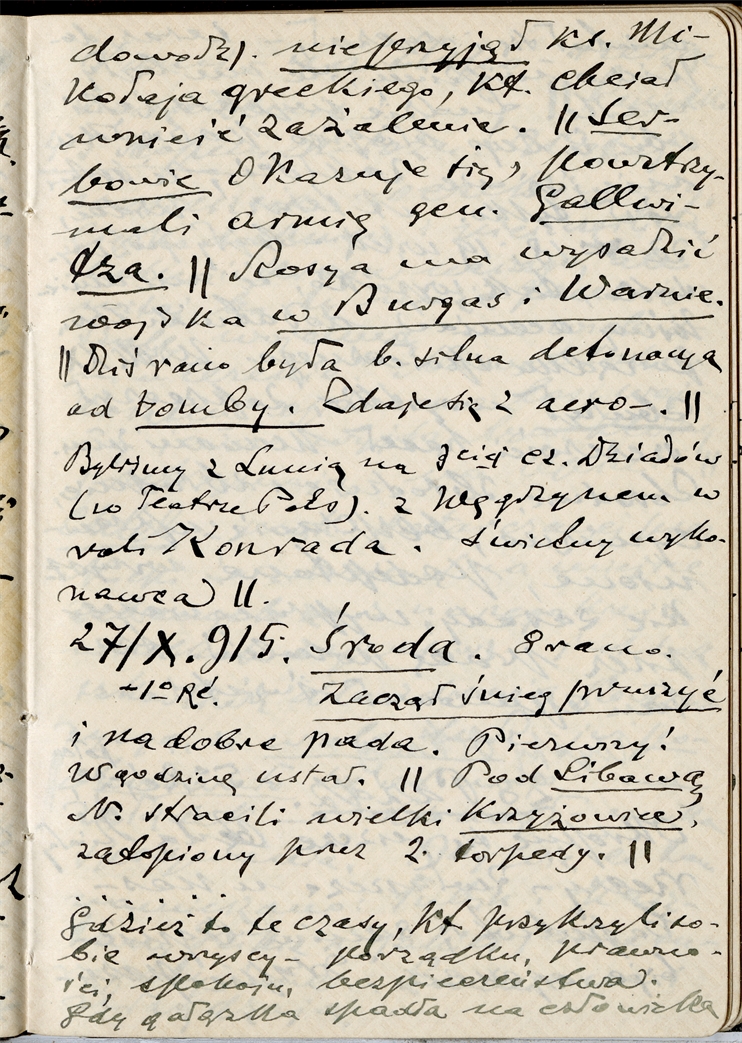 dowodz). nie przyjął ks. Mi-
kołaja greckiego, kt. chciał
wnieść zażalenie. || Ser-
bowie okazuje się, powstrzy-
mali armię gen. Gallwi-
tza. || Rosya ma wysadzić
wojska w Burgas i Warnie.
|| Dziś rano była b. silna detonacya
od bomby. Zdaje się z aero-. ||
Byliśmy z Lunią na 3ciej cz. Dziadów
(w Teatrze Pols). z Węgrzynem w
roli Konrada. Świetny wyko-
nawca) ||.
27/X.915. Środa. 8 rano.
+1° Ré. Zaczął śnieg prószyć
i na dobre pada. Pierwszy!
W godzinę ustał. || Pod Libawą
N. stracili wielki Krzyżowiec,
zatopiony przez 2. torpedy. ||
Gdzież to te czasy, kt. przykrzyli so-
bie wszyscy – porządku, prawno-
ści, spokoju, bezpieczeństwa.
Gdy gałązka spadła na człowieka